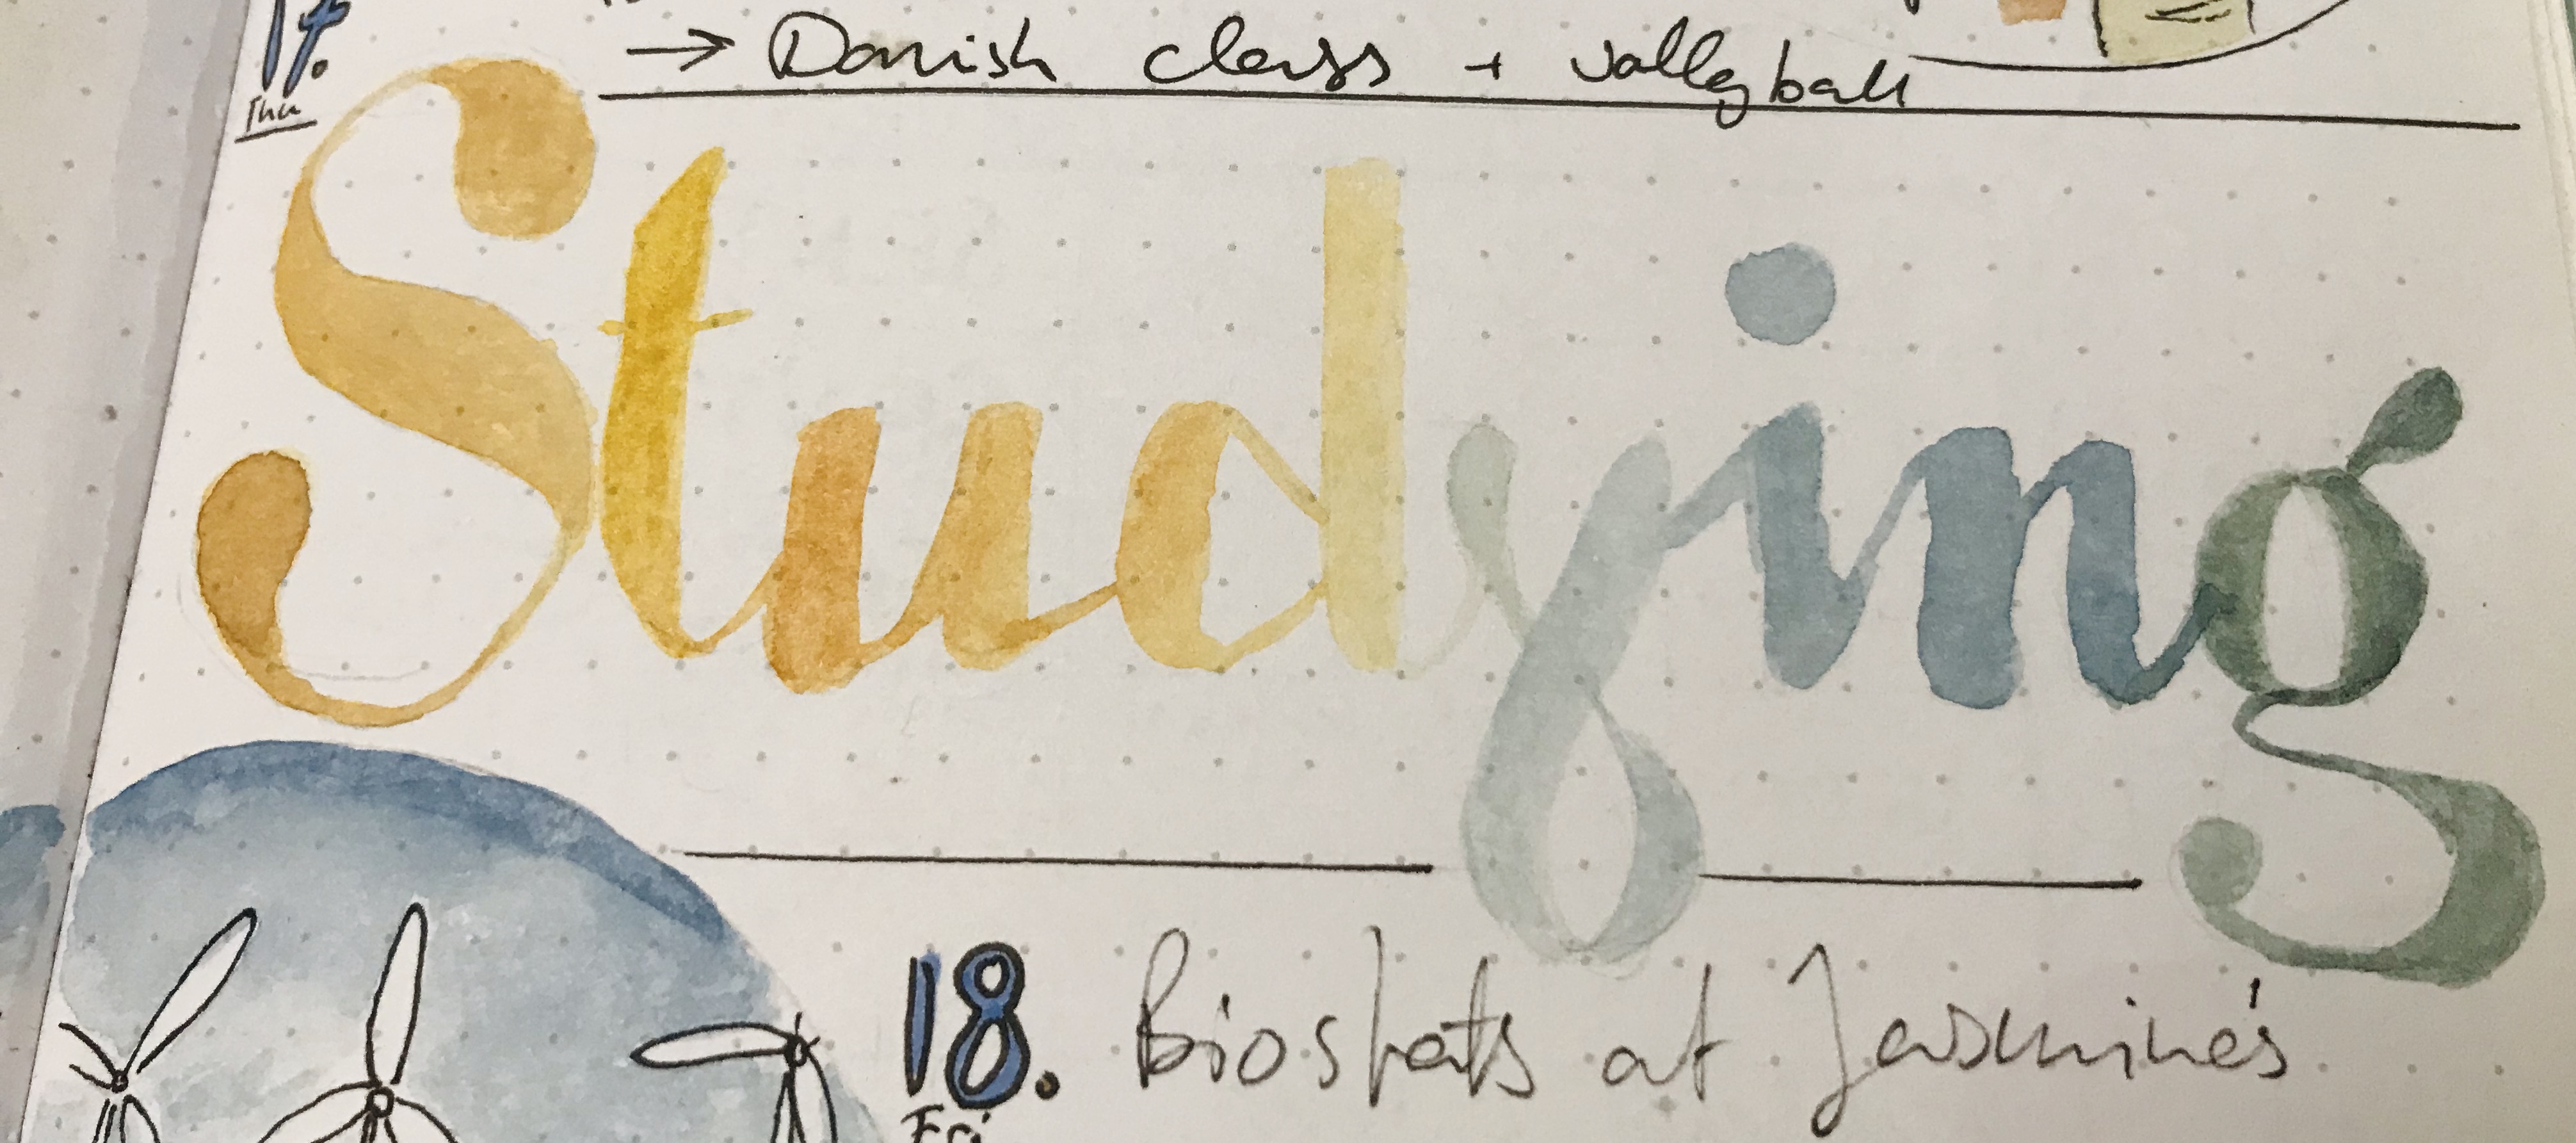 17. → Danish class + volleyball
Thu
Studying
18. Biostats at Jasmine's
Fri